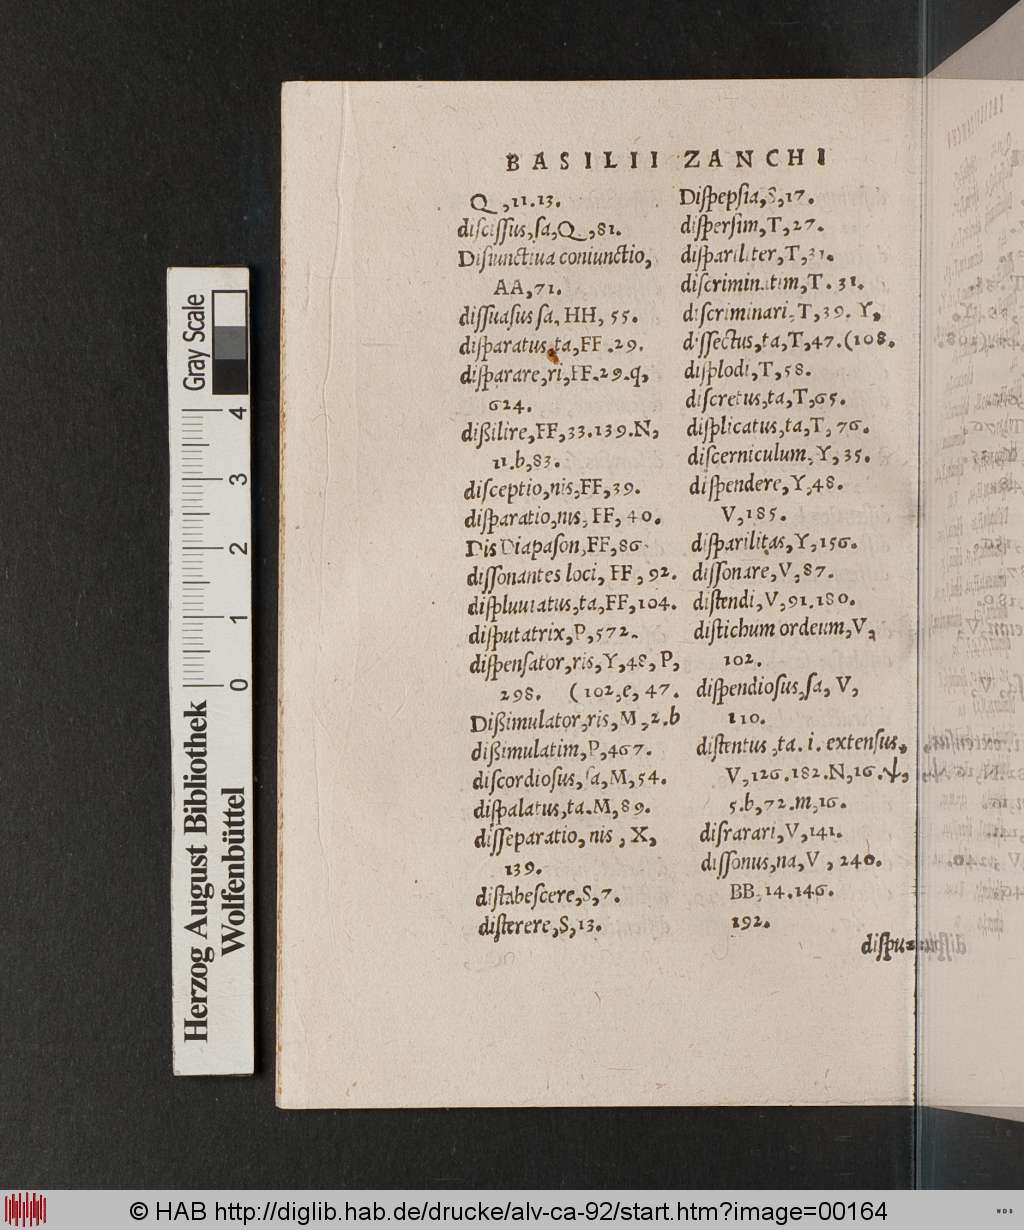 BASILII ZANCHI
Q, 11. 13.
diſciſſus, ſa, Q, 81.
Diſiunctiua coniunctio,
AA, 71.
diſſuaſus ſa, HH, 55.
diſparatus, ta, FF. 29.
diſparare, ri, FF. 29. q,
624.
dißilire, FF, 33. 139. N,
11. b, 83.
diſceptio, nis, FF, 39.
diſparatio, nis, FF, 40.
Dis Diapaſon, FF, 86.
diſſonantes loci, FF, 92.
diſpluuiatus, ta, FF, 104.
diſputatrix, P, 572.
diſpenſator, ris, Y, 48, P,
298. (102, e, 47.
Dißimulator, ris, M, 2. b
dißimulatim, P, 467.
diſcordioſus, ſa, M, 54.
diſpalatus, ta. M, 89.
diſſeparatio, nis, X,
139.
diſtabeſcere, S, 7.
diſterere, S, 13.
Diſpepſia, S, 17.
diſperſim, T, 27.
diſpariliter, T, 31.
diſcriminatim, T. 31.
diſcriminari, T, 39. Y,
diſſectus, ta, T, 47. (108.
diſplodi, T, 58.
diſcretus, ta, T, 65.
diſplicatus, ta, T, 76.
diſcerniculum, Y, 35.
diſpendere, Y, 48.
V, 185.
diſparilitas, Y, 156.
diſſonare, V, 87.
diſtendi, V, 91. 180.
diſtichum ordeum, V,
102.
diſpendioſus, ſa, V,
110.
diſtentus, ta. i. extenſus,
V, 126. 182. N, 16. ψ,
5. b, 72. m, 16.
diſrarari, V, 141.
diſſonus, na, V, 240.
BB, 14. 146.
192.
diſpu-
Gray Scale
4
3
2
1
0
Herzog August Bibliothek
Wolfenbüttel
© HAB http://diglib.hab.de/drucke/alv-ca-92/start.htm?image=00164
WDB